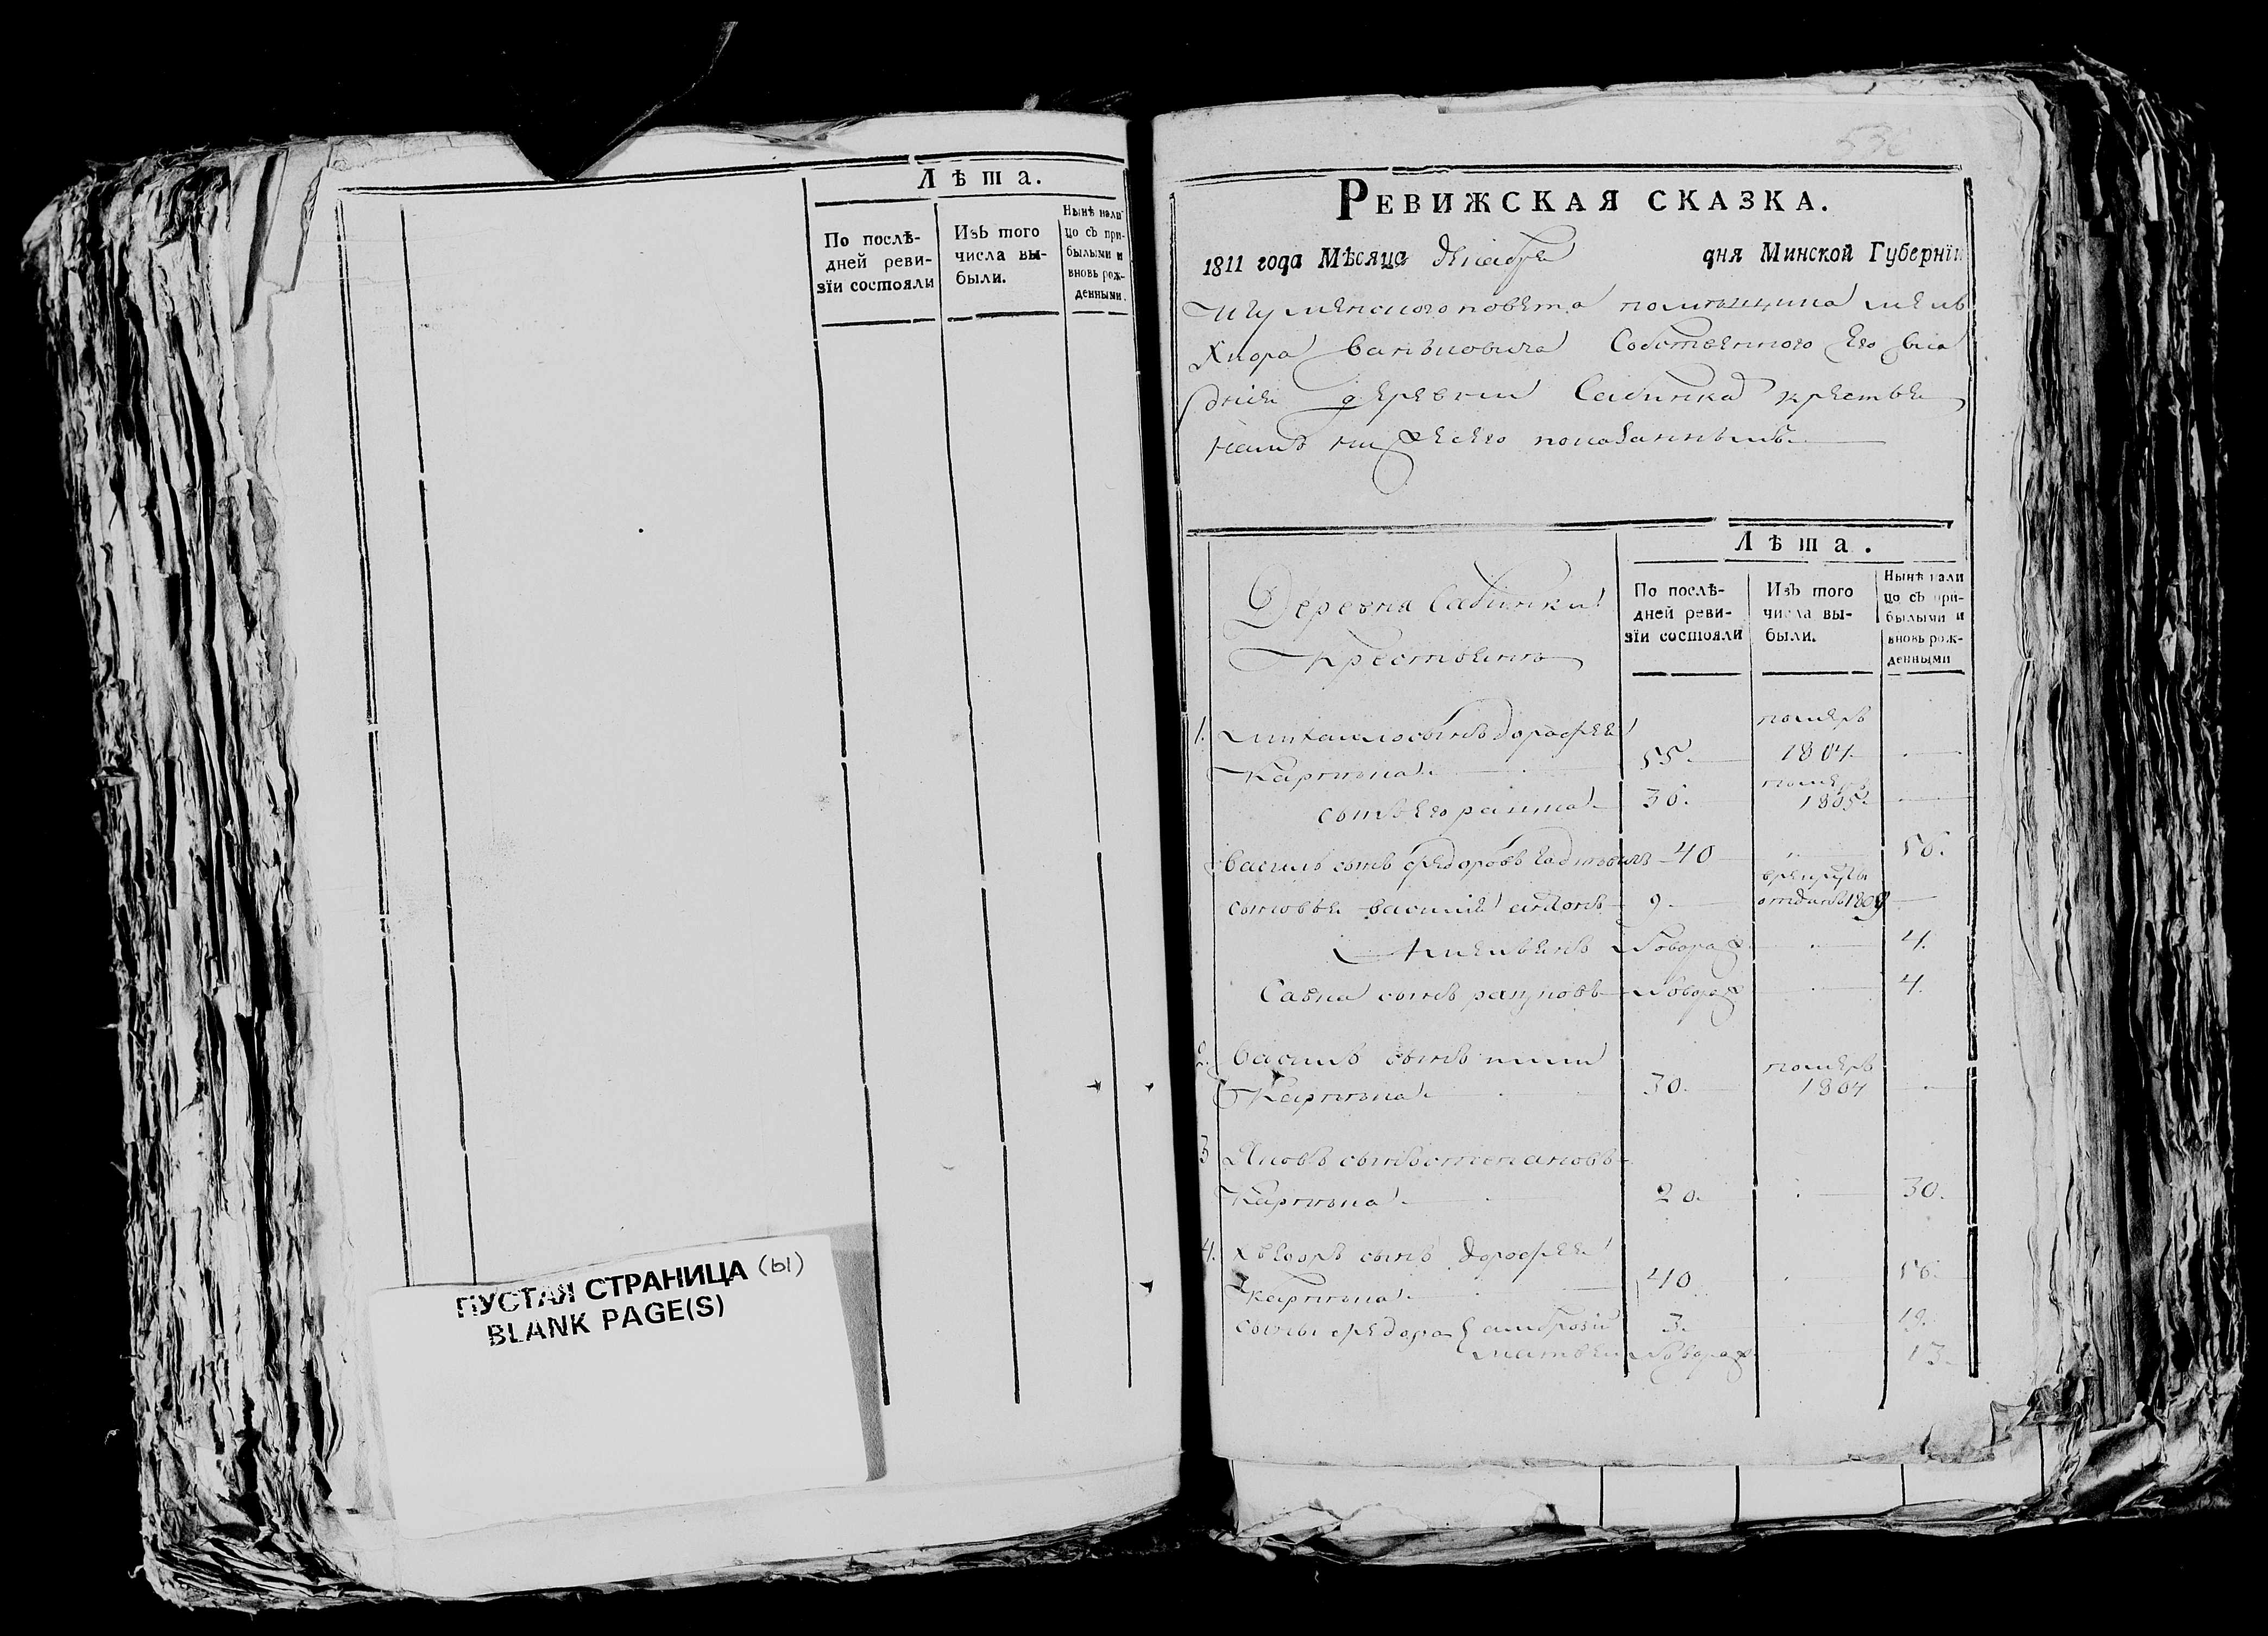 Лѣта.
По послѣ-
дней реви-
зїи состояли
Изъ того
числа вы-
были.
Нынѣ нали
цо съ при-
былыми и
вновь рож-
денными.
ПУСТАЯ СТРАНИЦА (ы)
BLANK PAGE(S)
536
РЕВИЖСКАЯ СКАЗКА.
1811 года Мѣсяца декабря дня Минской Губернїи
Игуменского повета помещика мель
хиора Ваньковича Собственного Его
деревни Сабинка крестья
намъ ниже сего показаннымъ
Лѣта.
Деревня Сабинки
Крестьянъ
По послѣ-
дней реви-
зїи состояли
Изъ того
числа вы-
были.
Нынѣ нали
цо съ при-
былыми и
вновь рож-
денными
1. Михайло сынъ дорофея померъ
Карпина 55. 1804
померъ
сынъ Его 30. 1805
Василь сынъ федоровъ 40 56.
в рекруты
сыновья василия 9 отданъ 1809
Новорож 4.
Савка сынъ Новорож 4.
2. Василь сынъ померъ
Карпина 30. 1804
3 Яковъ сынъ степановъ
Карпина 20. 30.
4. Хведоръ сынъ дорофея
Карпина 40 56.
сыны федора { амброзий 3. 19.
матвей Новорож 13.